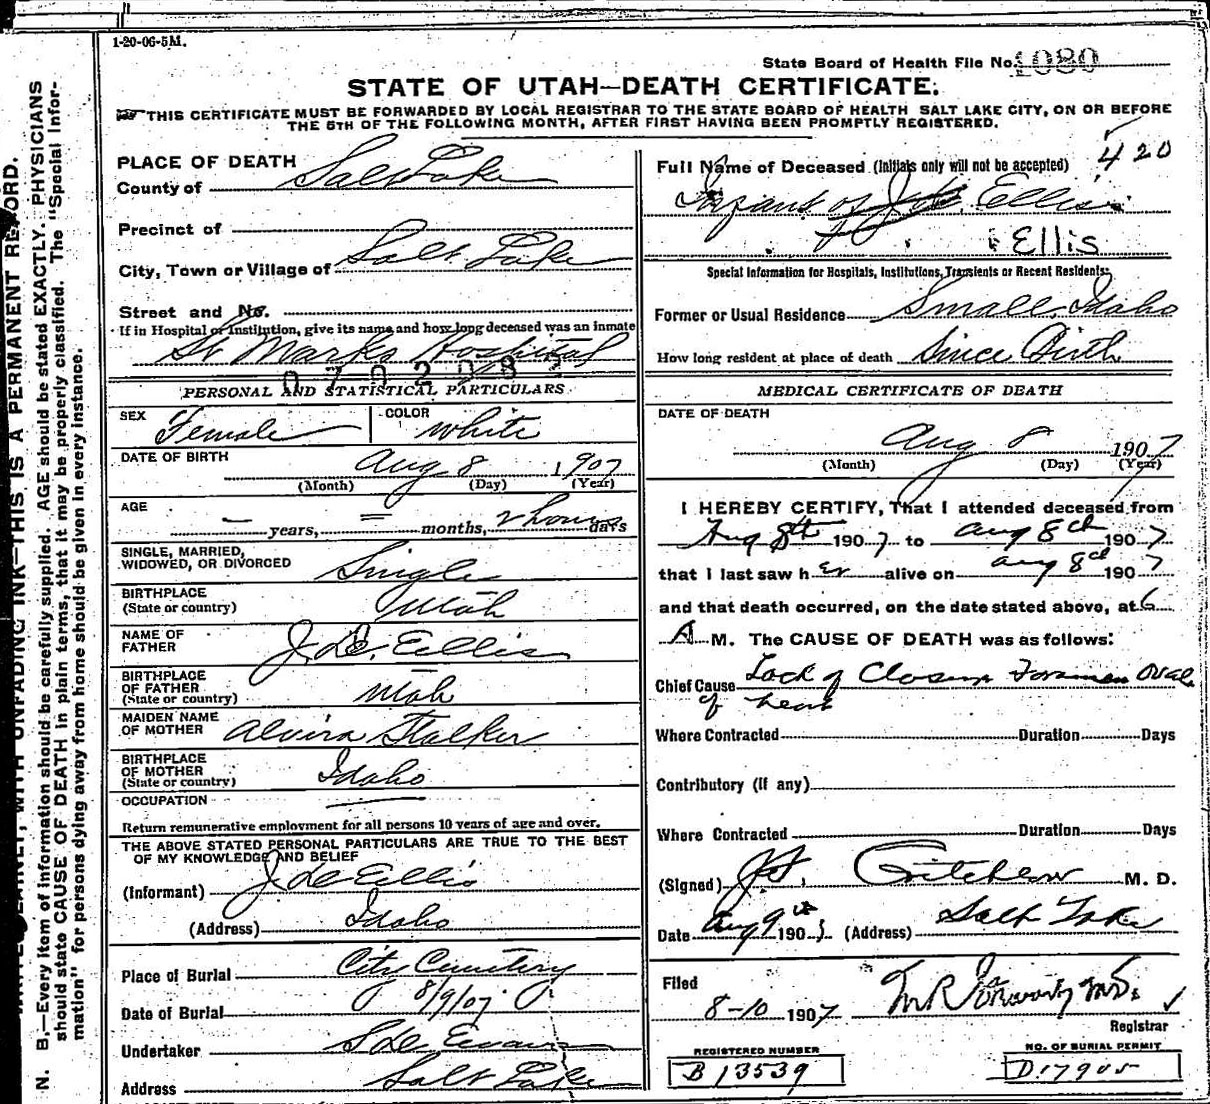 1-20-06-5M.
State Board of Health File No. 1080
STATE OF UTAH—DEATH CERTIFICATE.
THIS CERTIFICATE MUST BE FORWARDED BY LOCAL REGISTRAR TO THE STATE BOARD OF HEALTH SALT LAKE CITY, ON OR BEFORE
THE 5TH OF THE FOLLOWING MONTH, AFTER FIRST HAVING BEEN PROMPTLY REGISTERED.
PLACE OF DEATH
County of Salt Lake
Precinct of
City, Town or Village of Salt Lake
Street and No.
If in Hospital or Institution, give its name and how long deceased was an inmate
St Marks Hospital
PERSONAL AND STATISTICAL PARTICULARS
SEX Female COLOR white
DATE OF BIRTH Aug 8 1907
(Month) (Day) (Year)
AGE — years, = months, 2 hours days
SINGLE, MARRIED,
WIDOWED, OR DIVORCED Single
BIRTHPLACE
(State or country) Utah
NAME OF
FATHER Ellis
BIRTHPLACE
OF FATHER
(State or country) Utah
MAIDEN NAME
OF MOTHER Alvira Stalker
BIRTHPLACE
OF MOTHER
(State or country) Idaho
OCCUPATION
Return remunerative employment for all persons 10 years of age and over.
THE ABOVE STATED PERSONAL PARTICULARS ARE TRUE TO THE BEST
OF MY KNOWLEDGE AND BELIEF
(Informant) Ellis
(Address) Idaho
Place of Burial City Cemetery
Date of Burial 8/9/07
Undertaker Evans
Address Salt Lake
420
Full Name of Deceased (Initials only will not be accepted)
Infant of Ellis
Ellis
Special Information for Hospitals, Institutions, Transients or Recent Residents:
Former or Usual Residence Small, Idaho
How long resident at place of death Since Birth
MEDICAL CERTIFICATE OF DEATH
DATE OF DEATH
Aug 8 1907
(Month) (Day) (Year)
I HEREBY CERTIFY, That I attended deceased from
Aug 8th 1907 to Aug 8th 1907
that I last saw her alive on Aug 8th 1907
and that death occurred, on the date stated above, at 6
A M. The CAUSE OF DEATH was as follows:
Chief Cause Lack of Closure Foramen Oval
of heart
Where Contracted Duration Days
Contributory (if any)
Where Contracted Duration Days
(Signed) M. D.
Date Aug 9th 190 (Address) Salt Lake
Filed
8-10 1907
Registrar
REGISTERED NUMBER
B 13539
NO. OF BURIAL PERMIT
D17905
THIS IS A PERMANENT RECORD.
N. B.—Every item of information should be carefully supplied. AGE should be stated EXACTLY. PHYSICIANS
should state CAUSE OF DEATH in plain terms, that it may be properly classified. The "Special Infor-
mation" for persons dying away from home should be given in every instance.